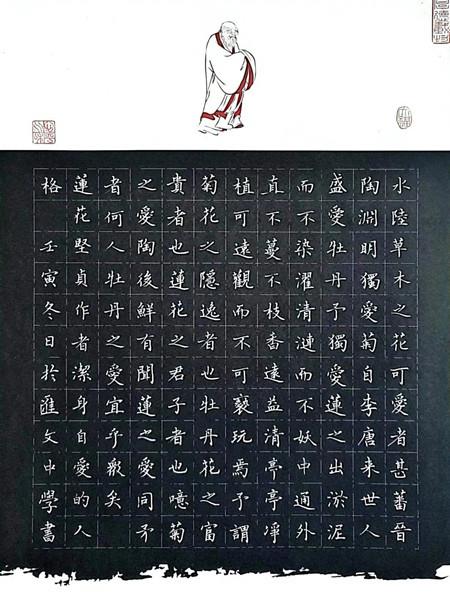 水陸草木之花可愛者甚蕃晉
陶淵明獨愛菊自李唐来世人
盛愛牡丹予獨愛蓮之出淤泥
而不染濯清漣而不妖中通外
直不蔓不枝香遠益清亭亭凈
植可遠觀而不可褻玩焉予謂
菊花之隱逸者也牡丹花之富
貴者也蓮花之君子者也噫菊
之愛陶後鮮有聞蓮之愛同矛
者何人牡丹之愛宜乎衆矣
蓮花堅貞作者潔身自愛的人
格 壬寅冬日於匯文中學書